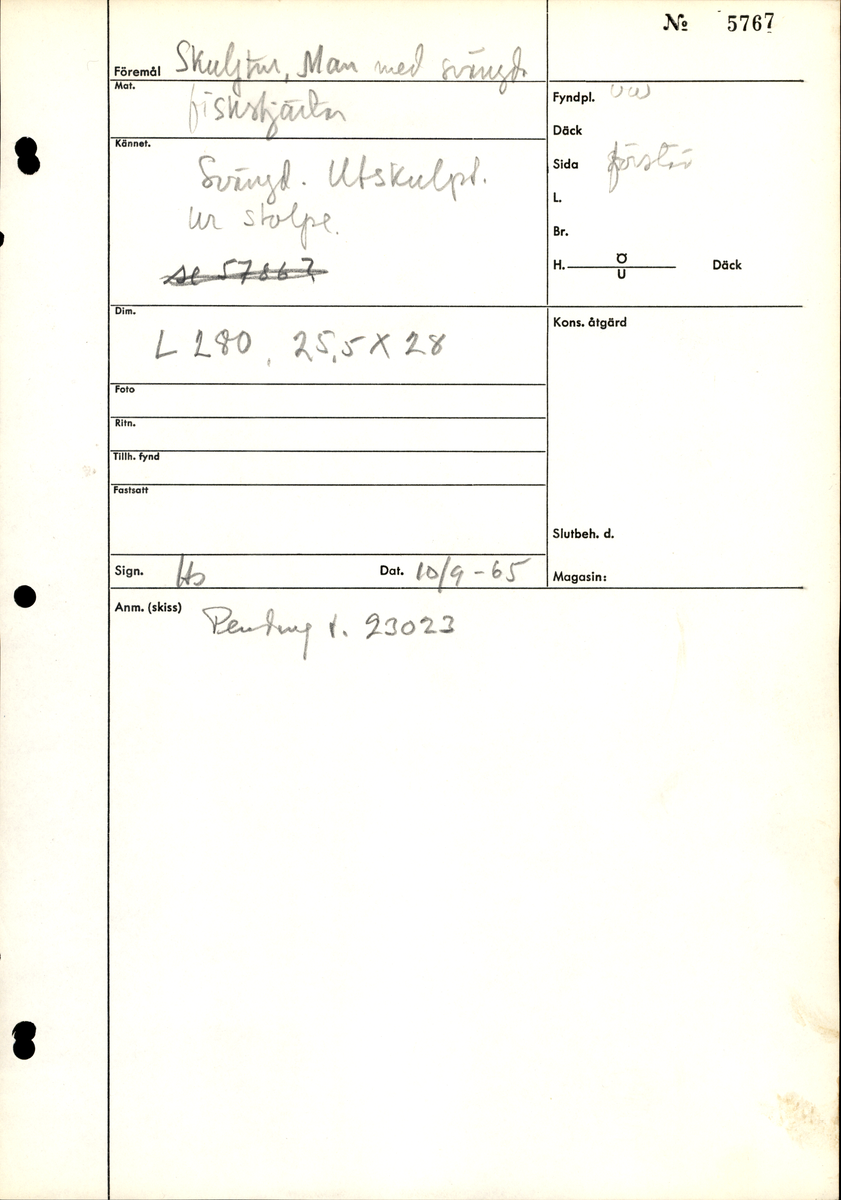 № 5767
Föremål Skulptur, Man med svängd.
Mat. fiskstjärtar
Kännet. Svängd. Utskulpt.
ur stolpe.
se 57667
Dim. L 280, 25,5 X 28
Foto
Ritn.
Tillh. fynd
Fastsatt
Sign. Hs Dat. 10/9-65
Fyndpl. uw
Däck
Sida förstäv
L.
Br.
H. Ö U Däck
Kons. åtgärd
Slutbeh. d.
Magasin:
Anm. (skiss) Pendang t. 23023